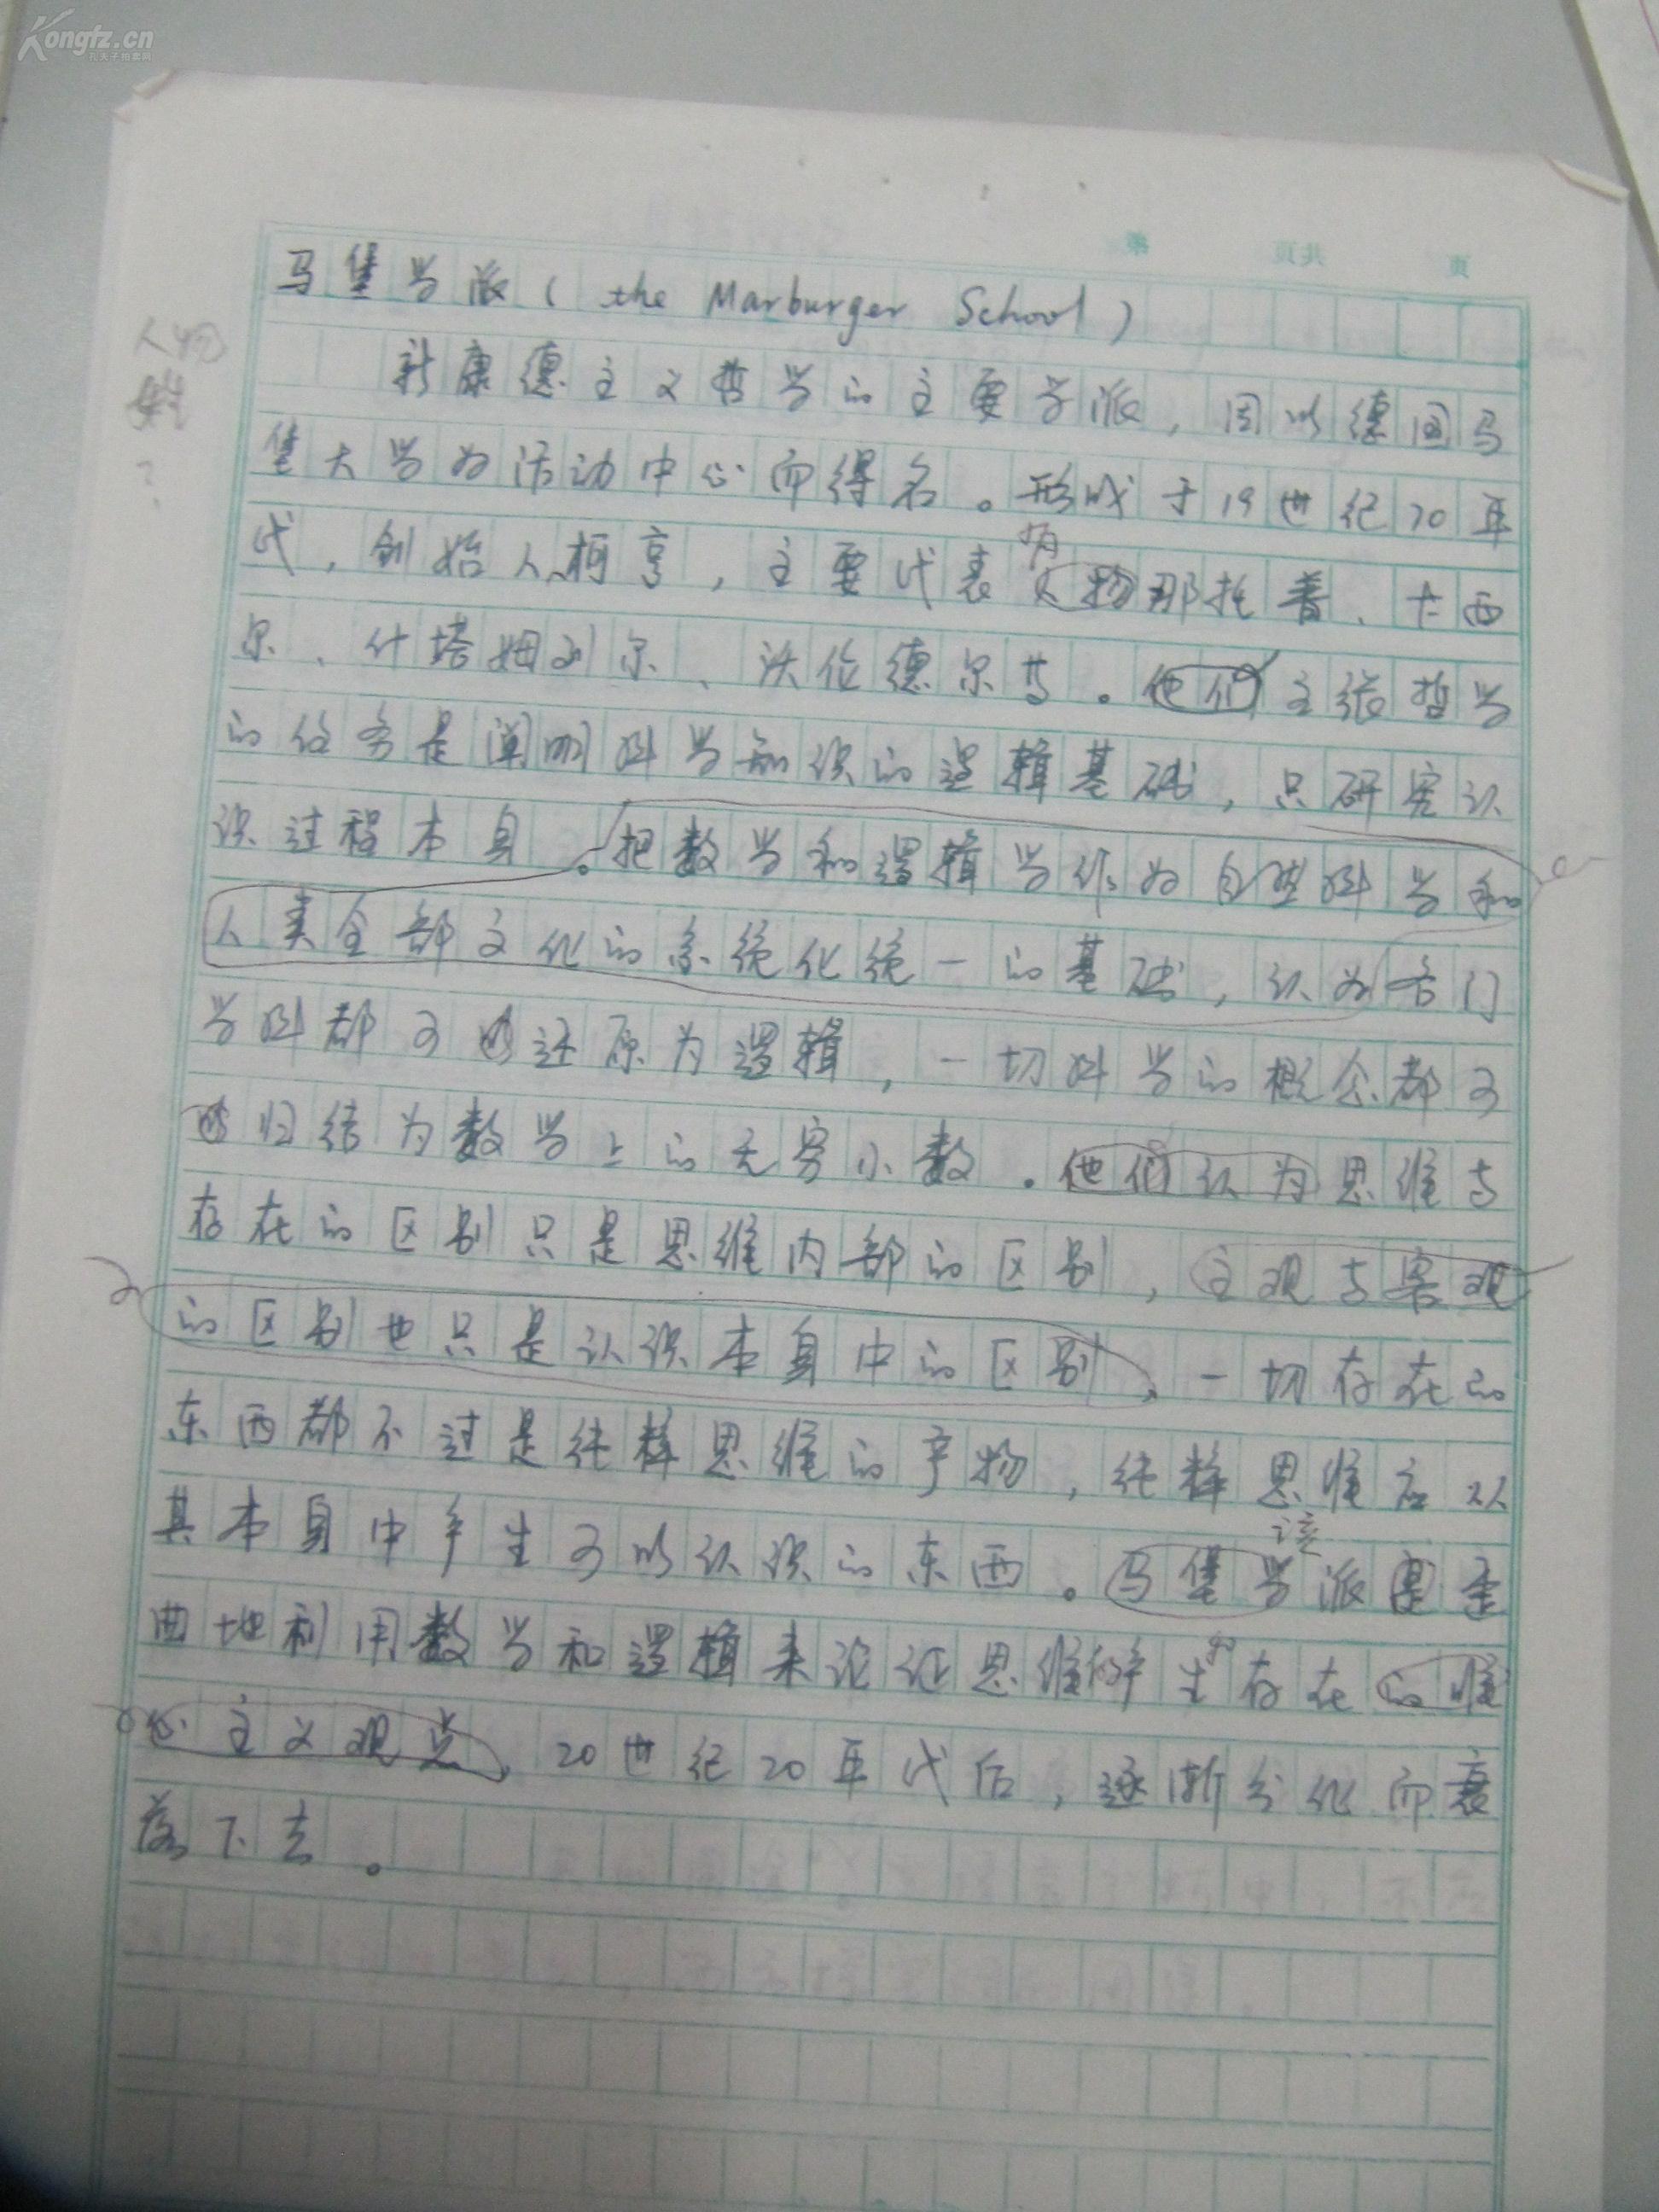 Kongfz.cn
孔夫子拍卖网
马堡学派(the Marburger School)
人物
新康德主义哲学的主要学派,因以德国马
堡大学为活动中心而得名。形成于19世纪70年
代,创始人柯亨,主要代表人物那托普、卡西
有
尔、什塔姆列尔、沃位德尔等。他们主张哲学
的任务是阐明科学知识的逻辑基础,只研究认
识过程本身。把数学和逻辑学作为自然科学和
人类全部文化的系统化统一的基础,认为各门
学科都可以还原为逻辑,一切科学的概念都可
以归结为数学上的无穷小数。他们认为思维与
存在的区别只是思维内部的区别,主观与客观
的区别也只是认识本身中的区别,一切存在的
东西都不过是纯粹思维的产物,纯粹思维应从
其本身中产生可以认识的东西。马堡学派是歪
该
曲地利用数学和逻辑来论证思维产生存在的唯
心主义观点,20世纪20年代后,逐渐分化而衰
落下去。